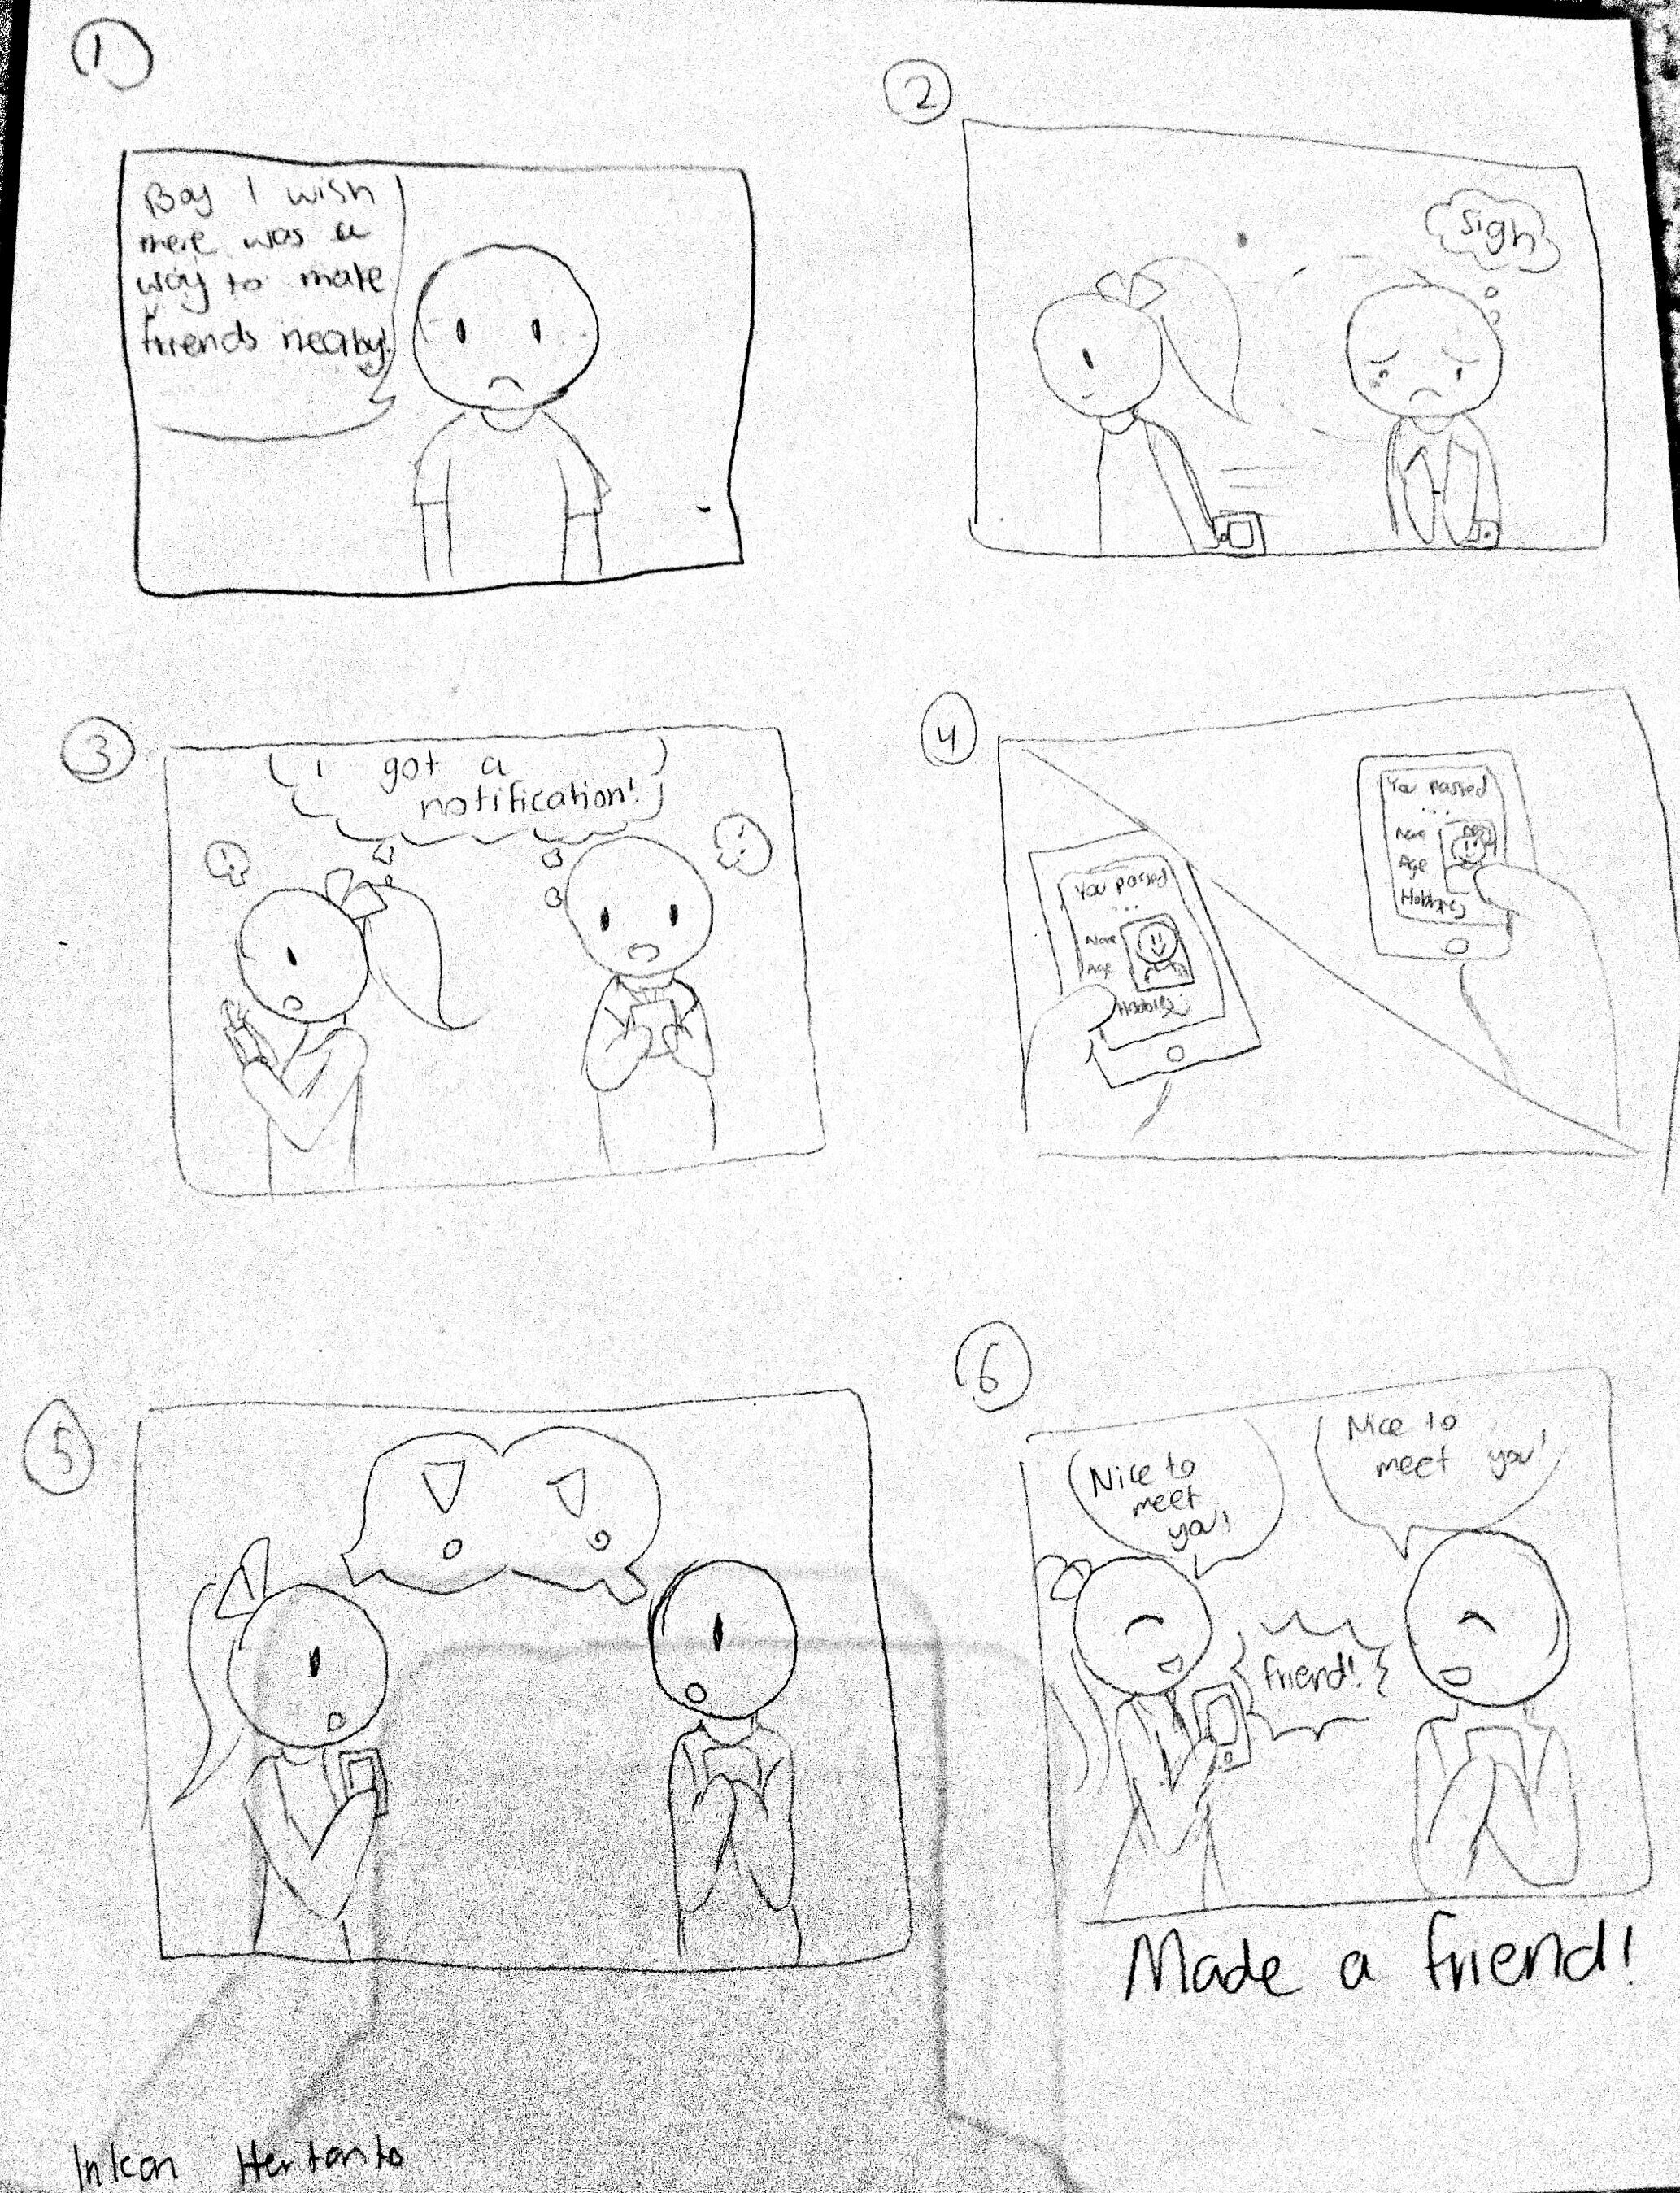 1
Boy I wish
there was a
way to make
friends neaby!
2
sigh
3
I got a
notification!
!
!
4
You passed
...
Name
Age
Hobbies
You passed
...
Name
Age
Hobbies
5
! !
6
Nice to
meet
you!
Nice to
meet you!
friend!
Made a friend!
Inkan Hertanto